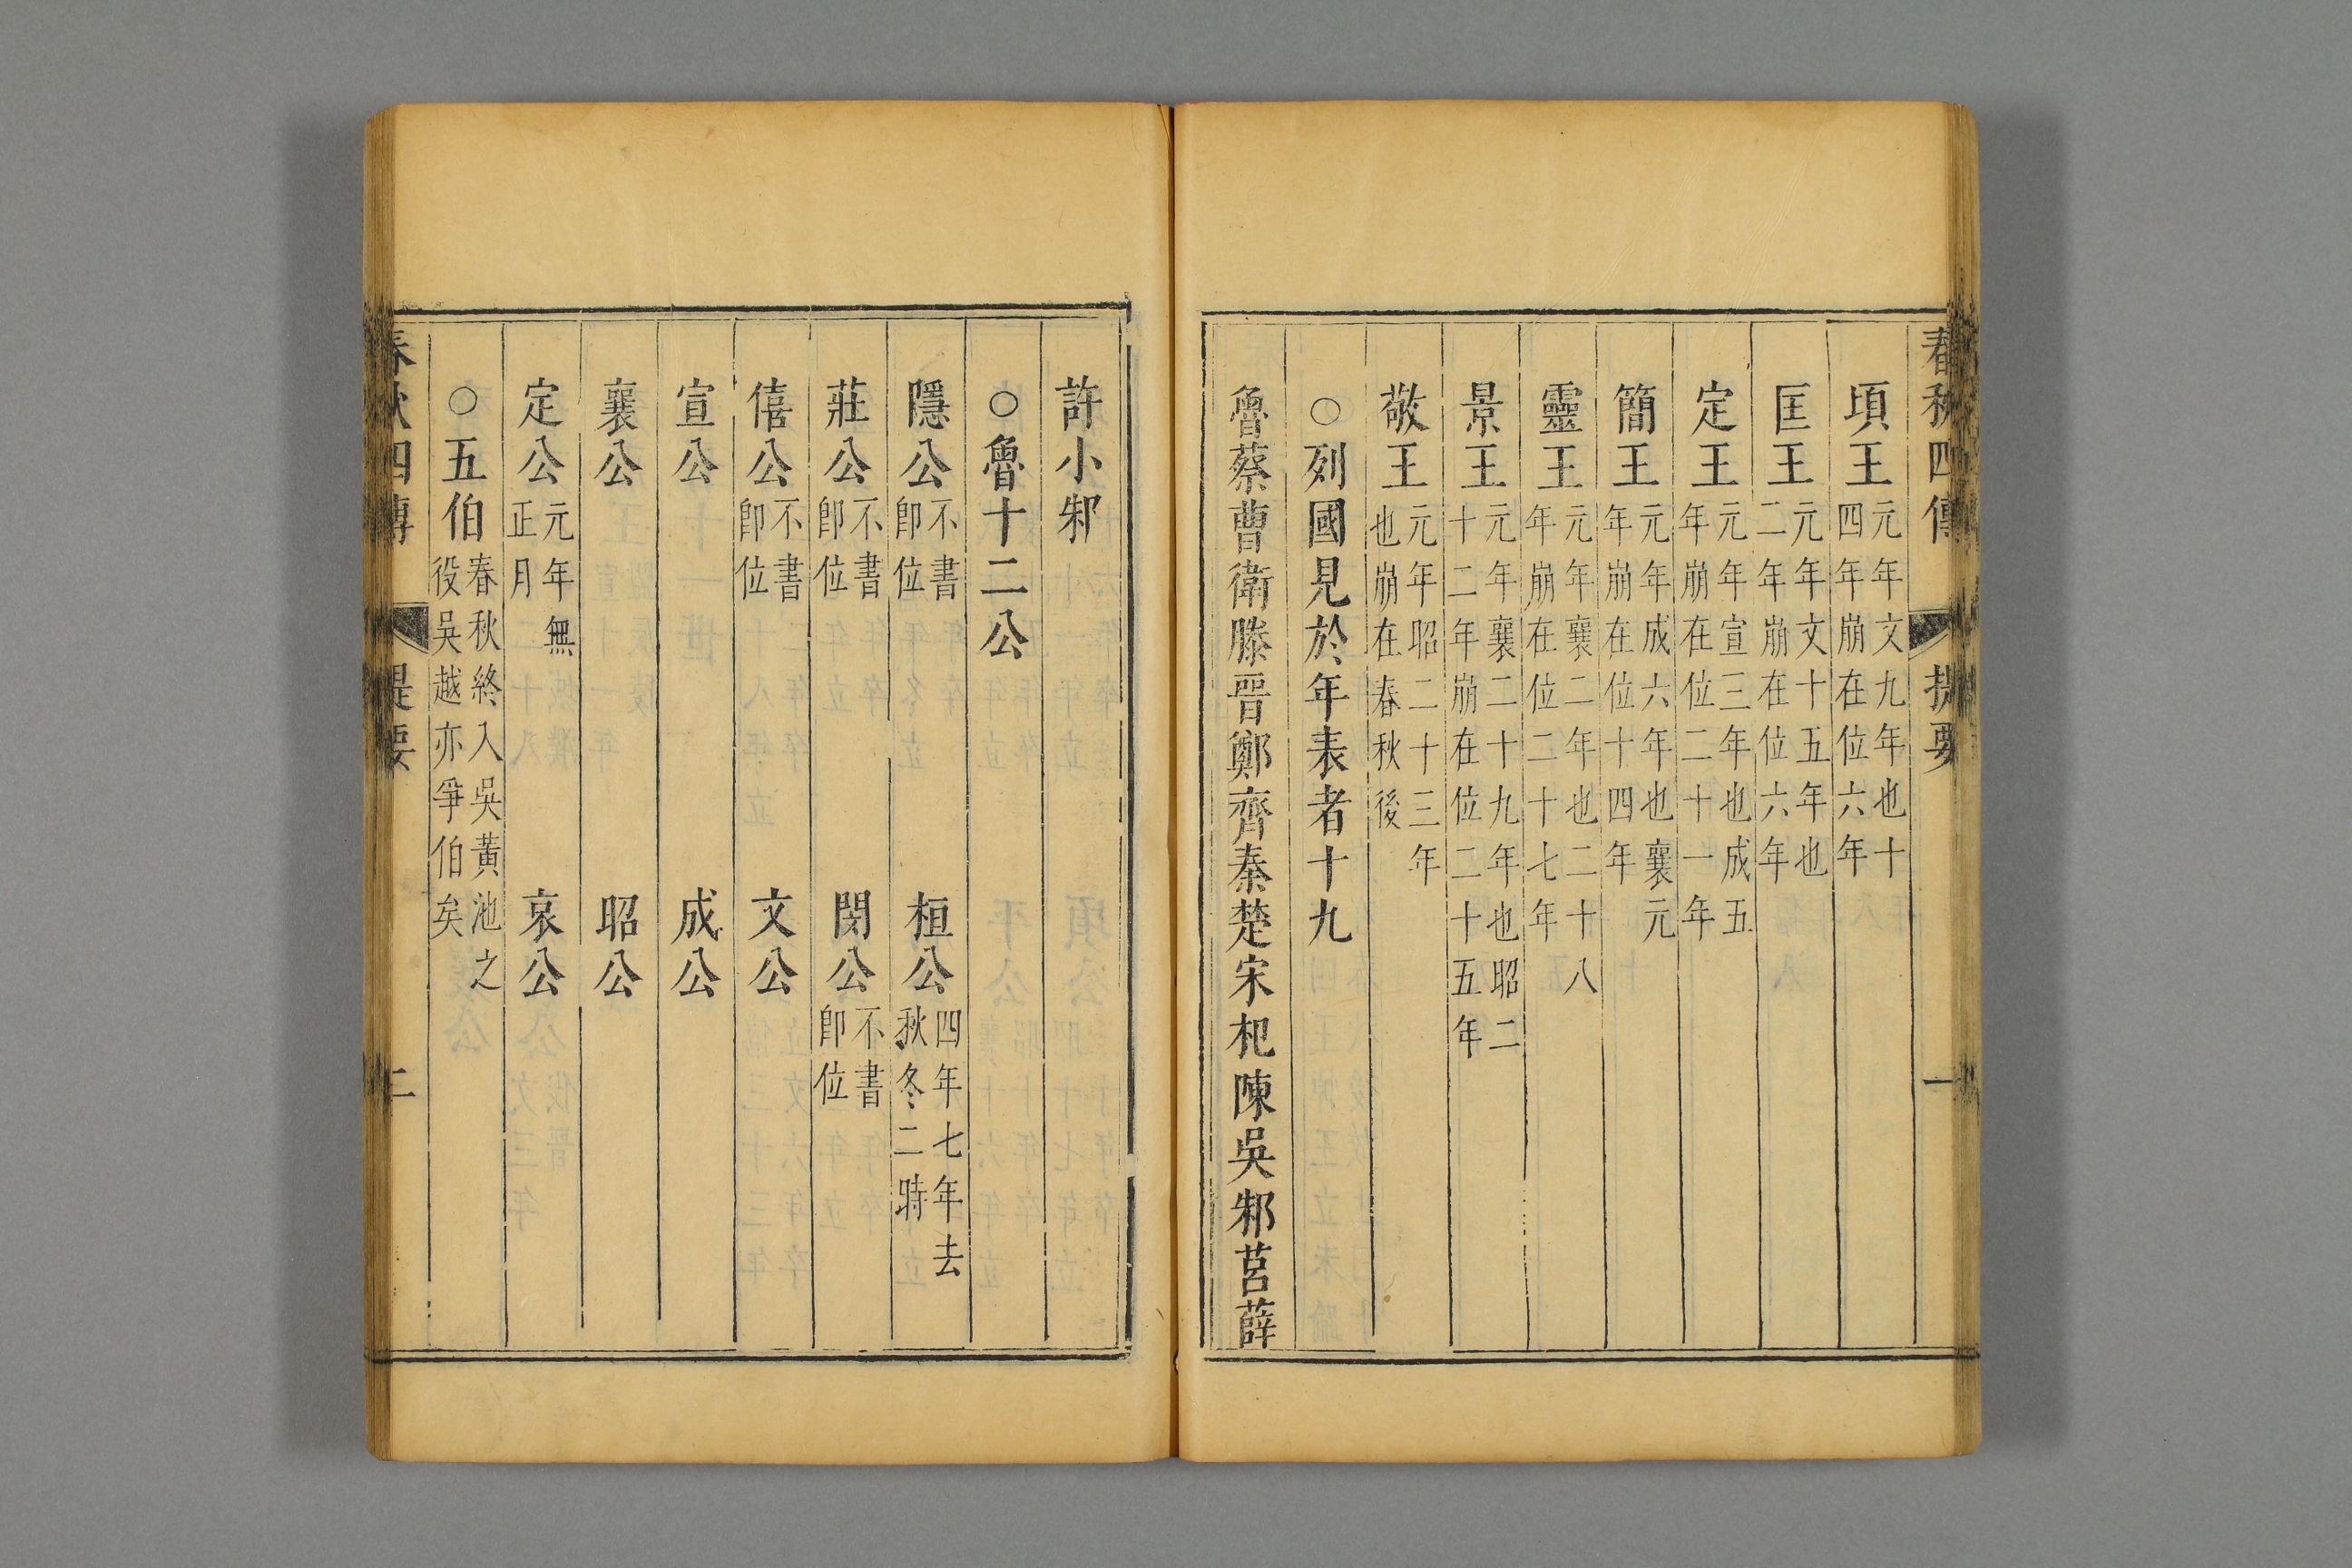 春秋四傳 提要 一
頃王元年文九年也十四年崩在位六年
匡王元年文十五年也二年崩在位六年
定王元年宣三年也成五年崩在位二十一年
簡王元年成六年也襄元年崩在位十四年
靈王元年襄二年也二十八年崩在位二十七年
景王元年襄二十九年也昭二十二年崩在位二十五年
敬王元年昭二十三年也崩在春秋後
○列國見於年表者十九
魯蔡曹衛滕晉鄭齊秦楚宋杞陳吳邾莒薛
許小邾
○魯十二公
隱公不書即位 桓公四年七年去秋冬二時
莊公不書即位 閔公不書即位
僖公不書即位 文公
宣公 成公
襄公 昭公
定公元年無正月 哀公
○五伯春秋終入吳黃池之役吳越亦爭伯矣
春秋四傳 提要 二